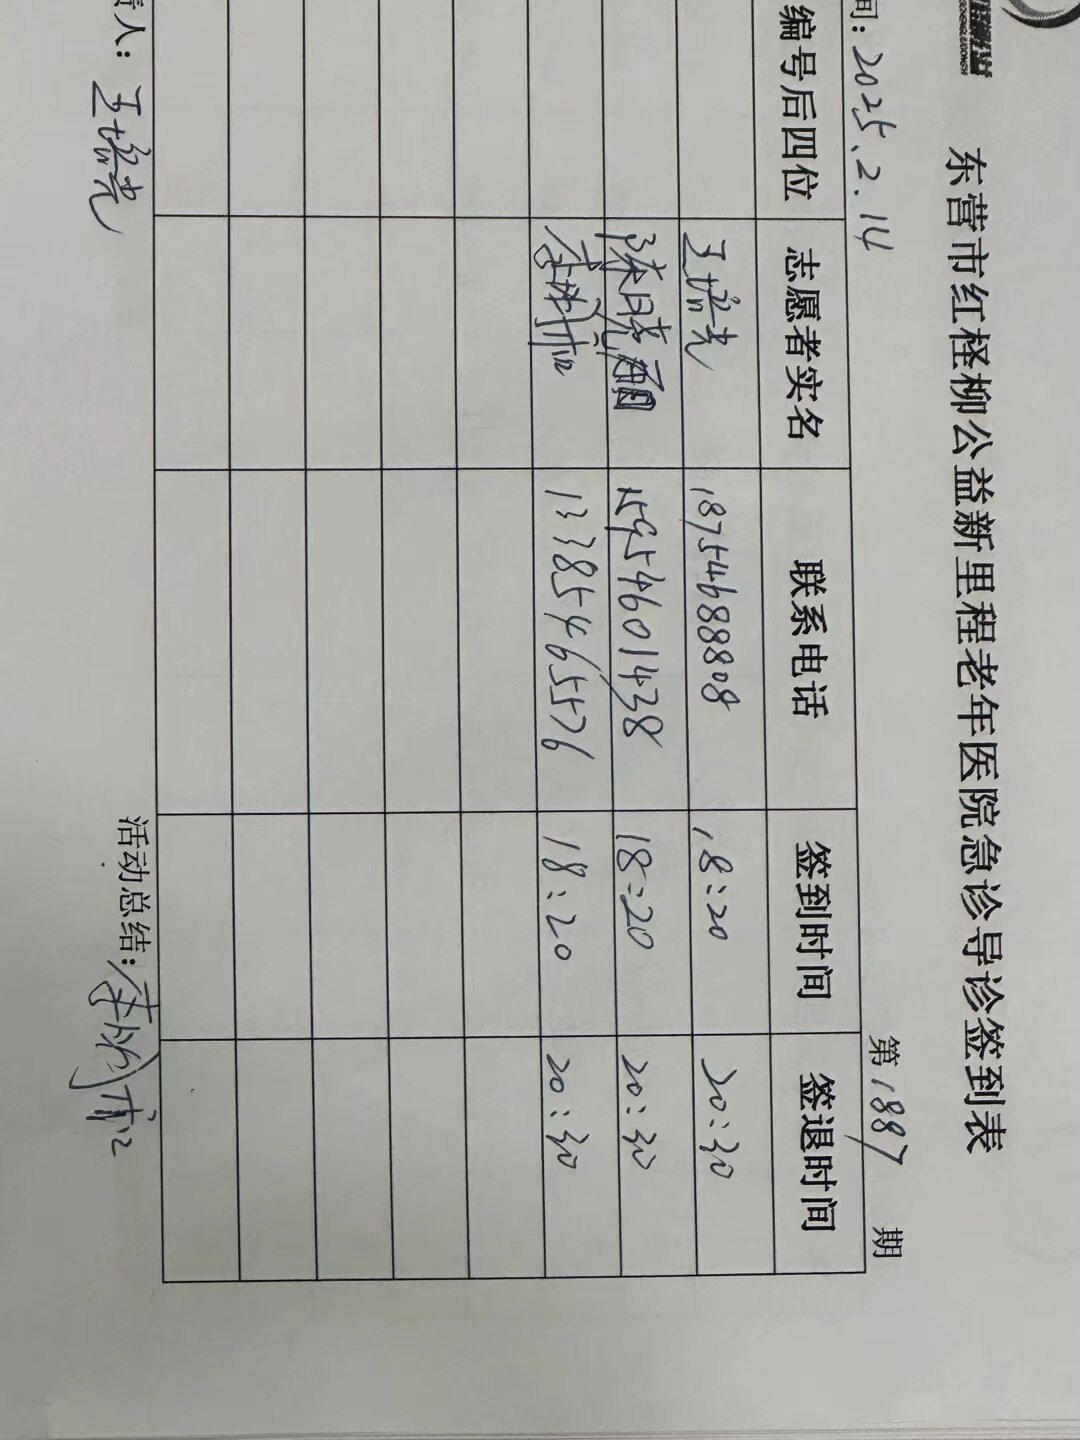 东营市红柽柳公益新里程老年医院急诊导诊签到表
间：2025.2.14 第1887期
编号后四位 志愿者实名 联系电话 签到时间 签退时间
王增光 18754688808 18:20 20:30
陈晓丽 15954601438 18:20 20:30
13385465576 18:20 20:30
责人：王增光 活动总结：